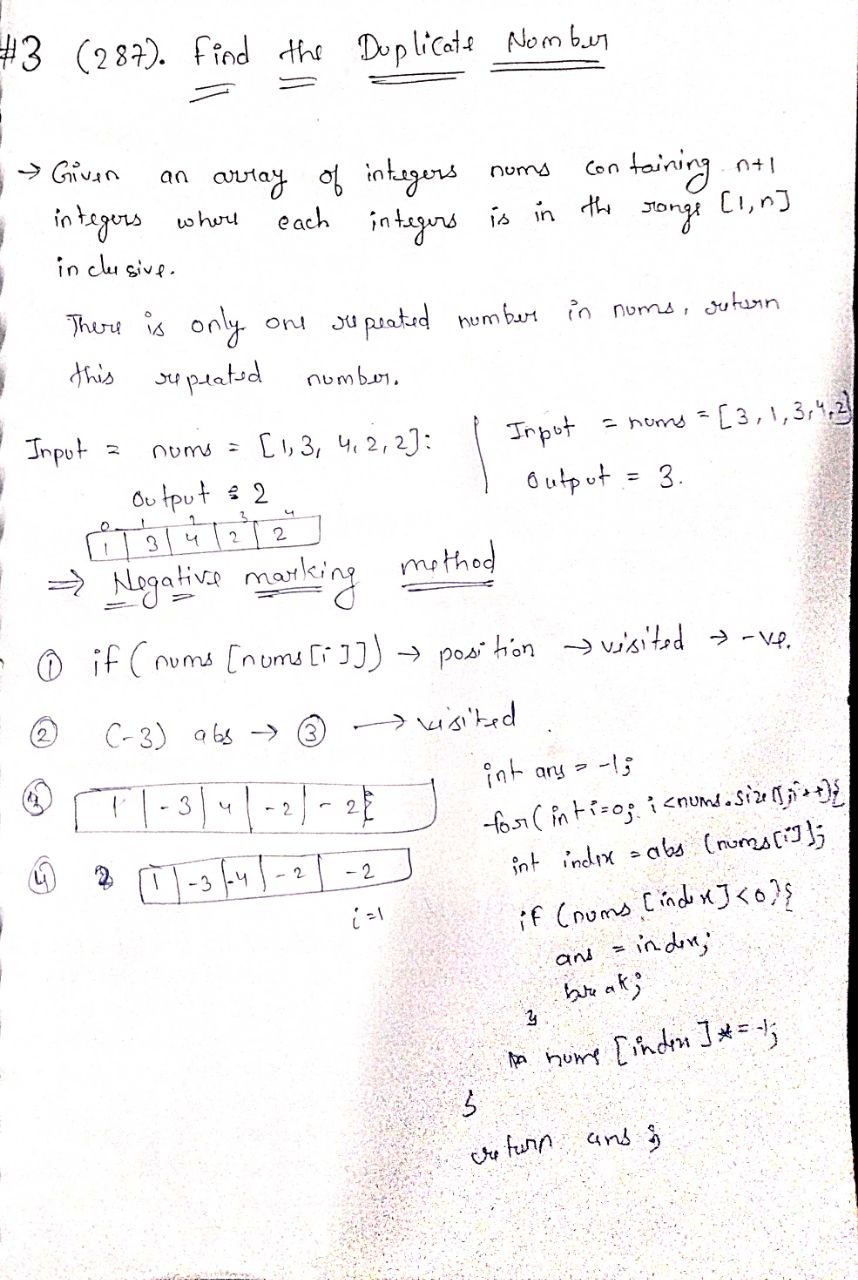 #3 (287). Find the Duplicate Number
→ Given an array of integers nums containing n+1
integers where each integers is in the range [1,n]
inclusive.
There is only one repeated number in nums, return
this repeated number.
Input = nums = [1,3,4,2,2]:
output = 2
Input = nums = [3,1,3,4,2]
Output = 3.
0 1 2 3 4
1 | 3 | 4 | 2 | 2
⇒ Negative marking method
① if (nums [nums[i]]) → position → visited → -ve.
② (-3) abs → ③ → visited
③ 1 | -3 | 4 | -2 | -2
④ 2 1 | -3 | -4 | -2 | -2
i=1
int ans = -1;
for(int i=0; i<nums.size();i++){
int index = abs (nums[i]);
if (nums [index]<0){
ans = index;
break;
}
nums [index] *= -1;
}
return ans;